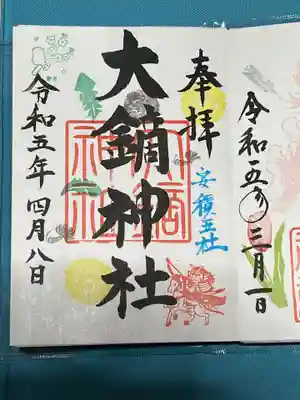 令和五年三月一日
奉拝
安積五社
大鏑神社
令和五年四月八日